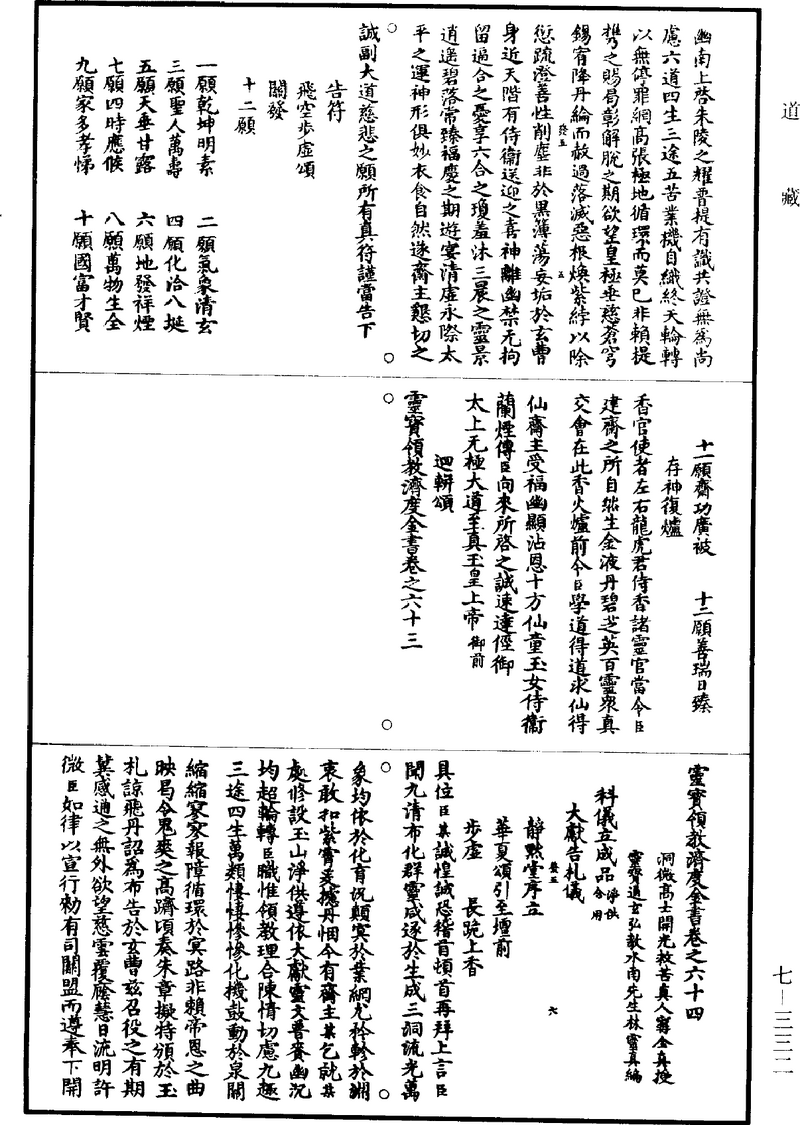 道藏
七—三三二
幽南上啓朱陵之耀普提有識共證無爲尚
慮六道四生三途五苦業機自織終天輪轉
以無停罪網高張極地循環而莫已非賴提
携之賜曷彰解脫之期欲望皇極垂慈蒼穹
錫宥降丹綸而赦過落滅惡根煥紫綍以除
愆疏澄善性削塵非於黑簿蕩妄垢於玄曹
身近天階有侍衛送迎之喜神離幽禁无拘
留逼合之憂享六合之瓊羞沐三晨之靈景
逍遥碧落常臻福慶之期遊宴清虛永際太
平之運神形俱妙衣食自然遂齋主懇切之
誠副大道慈悲之願所有真符謹當告下
告符
飛空步虛頌
關發
十二願
一願乾坤明素 二願氣象清玄
三願聖人萬壽 四願化洽八埏
五願天垂甘露 六願地發祥煙
七願四時應候 八願萬物生全
九願家多孝悌 十願國富才賢
十一願齋功廣被 十二願善瑞日臻
存神復爐
香官使者左右龍虎君侍香諸靈官當令臣
建齋之所自然生金液丹碧芝英百靈衆真
交會在此香火爐前令臣學道得道求仙得
仙齋主受福幽顯沾恩十方仙童玉女侍衛
蘭煙傳臣向來所啓之誠速達徑御
太上无極大道至真玉皇上帝御前
迴軿頌
靈寶領教濟度金書卷之六十三
靈寶領教濟度金書卷之六十四
洞微高士開光救苦真人甯全真授
靈寶通玄弘教水南先生林靈真編
科儀立成品淨供合用
大獻告札儀
靜默堂序立
華夏頌引至壇前
步虛 長跪上香
具位臣某誠惶誠恐稽首頓首再拜上言臣
聞九清布化群靈咸遂於生成三洞流光萬
象均依於化育況顛冥於業網尤矜軫於淵
衷敢扣紫霄爰攄丹悃今有齋主某乞就某
處修設玉山淨供遵依大獻靈文普賚幽沉
均超輪轉臣職惟領教理合陳情切慮九趣
三途四生萬類悽悽慘慘化機鼓動於泉關
縮縮寥寥報障循環於冥路非賴帝恩之曲
映曷令鬼爽之高躋頃奏朱章擬特頒於玉
札諒飛丹詔爲布告於玄曹兹召役之有期
冀感通之無外欲望慈雲覆廕慧日流明許
微臣如律以宣行勑有司關盟而遵奉下開